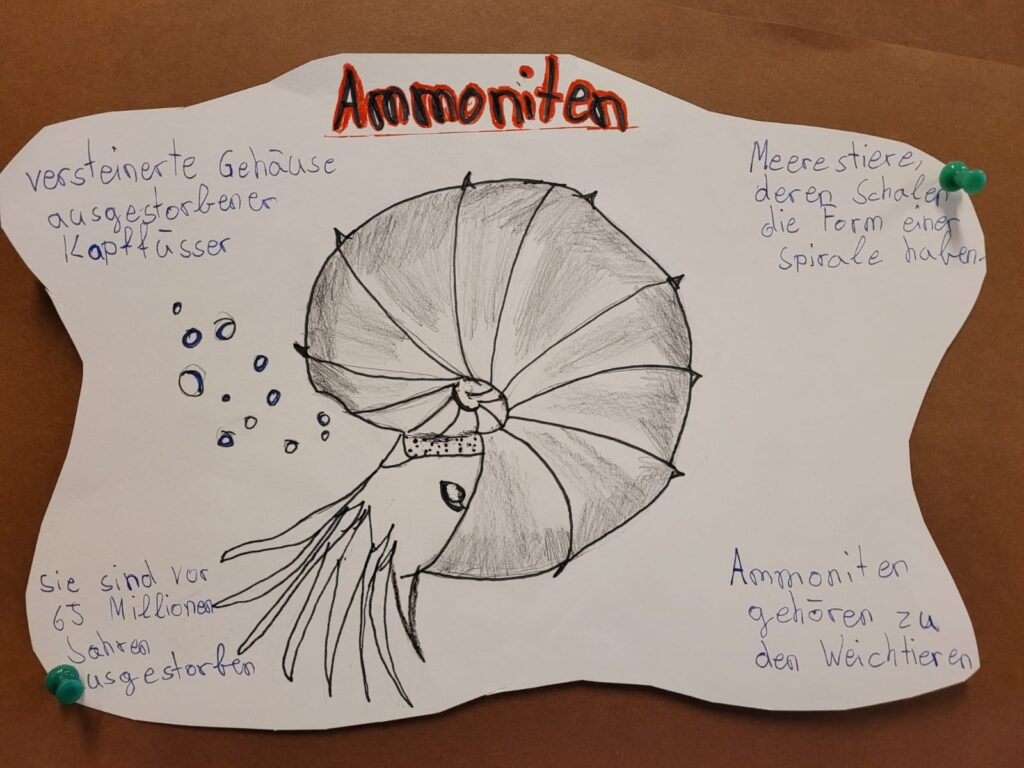 Ammoniten
versteinerte Gehäuse
ausgestorbener
Kopffüsser
Meerestiere,
deren Schalen
die Form einer
spirale haben.
sie sind vor
65 Millionen
Jahren
ausgestorben
Ammoniten
gehören zu
den Weichtieren